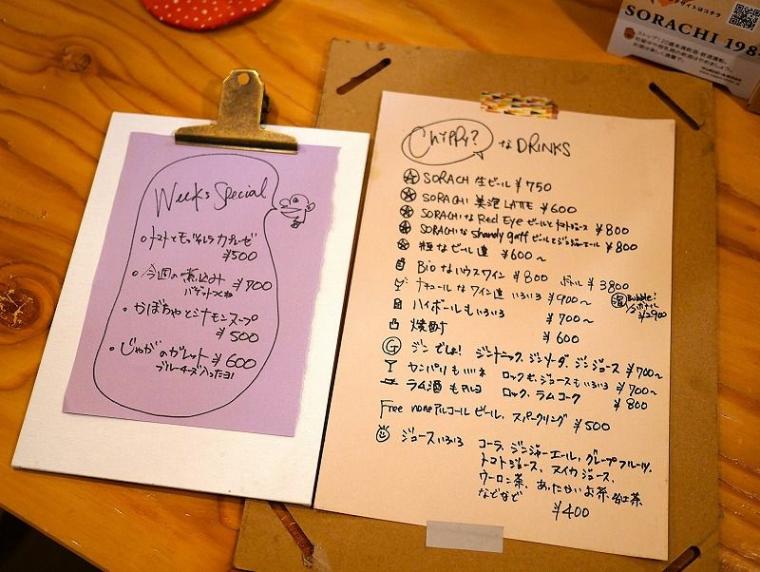 Weeks Special
・トマトとモッツァレラ カプレーゼ
¥500
・今週の煮込み ¥700
バゲットつくね
・かぼちゃとシナモンスープ
¥500
・じゃがのガレット ¥600
ブルーチーズ入ったヨ!
Chippy? な DRINKS
SORACHI 生ビール ¥750
SORACHI 美泡 LATTE ¥600
SORACHI な Red Eye ビールとトマトジュース ¥800
SORACHI な Shandy gaff ビールとジンジャーエール ¥800
粋なビール達 ¥600〜
Bio なハウスワイン ¥800 ボトル ¥3800
ナチュールなワイン達 いろいろ ¥900〜
泡 Bubble!
ボトル
¥2900
ハイボールもいろいろ ¥700〜
焼酎 ¥600
G ジンでしょ! ジントニック、ジンソーダ、ジンジュース ¥700〜
カンパリもいいネ ロックも、ジュースもいろいろ ¥700〜
ラム酒もアルヨ ロック、ラムコーク ¥800
Free none アルコール ビール、スパークリング ¥500
ジュースいろいろ コーラ、ジンジャーエール、グレープフルーツ、
トマトジュース、スイカジュース、
ウーロン茶、あったかいお茶、
などなど
¥400
SORACHI 198